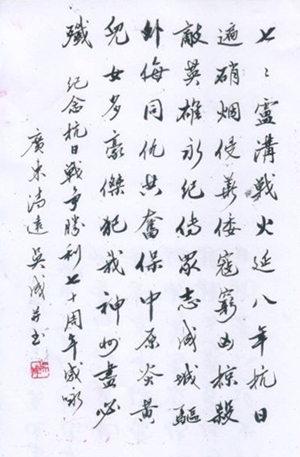 七〻盧溝戰火延八年抗日
遍硝烟侵華倭寇窮凶掠殺
敵英雄永紀傳眾志成城驅
外侮同仇共奮保中原炎黃
兒女多豪傑犯我神州盡必
殲 紀念抗日戰爭勝利七十周年感咏
廣東清遠吳成并书